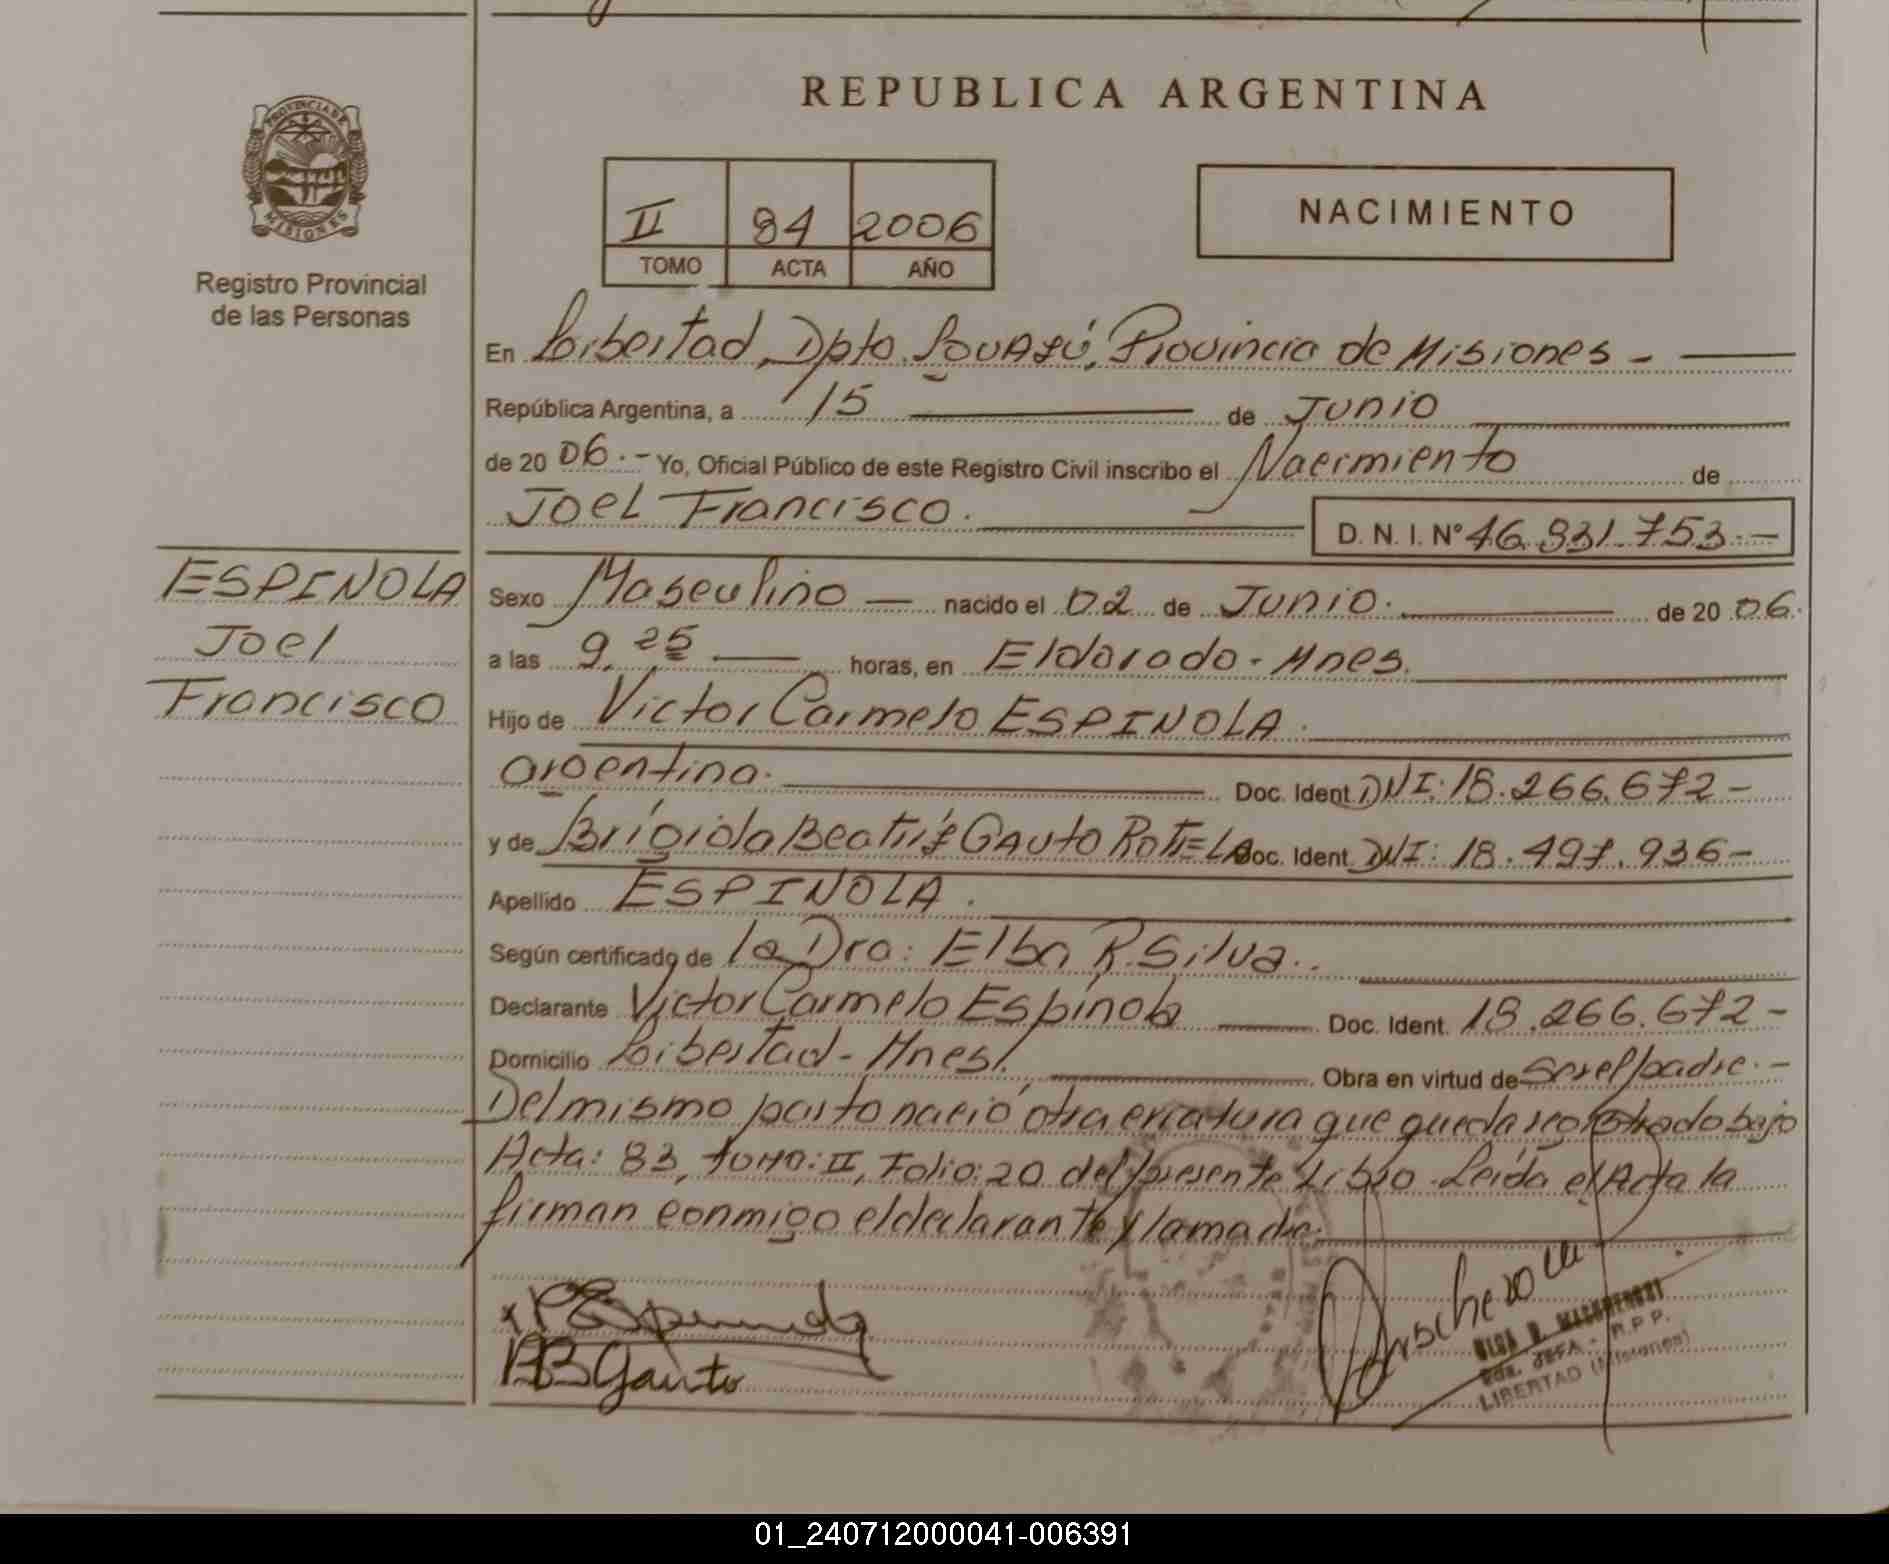 REPUBLICA ARGENTINA
PROVINCIA DE
MISIONES
Registro Provincial
de las Personas
II 84 2006
TOMO ACTA AÑO
NACIMIENTO
En Libertad, Dpto. Iguazú, Provincia de Misiones -
República Argentina, a 15 de Junio
de 20 06.- Yo, Oficial Público de este Registro Civil inscribo el Nacimiento de
Joel Francisco. D. N. I. Nº 46.831.753.-
ESPINOLA
Joel
Francisco
Sexo Masculino nacido el 02 de Junio. de 20 06.
a las 9,25 horas, en Eldorado - Mnes.
Hijo de Victor Carmelo ESPINOLA.
argentino. Doc. Ident. DNI: 18.266.672-
y de Brígida Beatríz GAUTO ROTELA Doc. Ident. DNI: 18.497.936-
Apellido ESPINOLA.
Según certificado de la Dra: Elba R. Silva..
Declarante Victor Carmelo Espínola Doc. Ident. 18.266.672-
Domicilio Libertad - Mnes. Obra en virtud de Ser el padre.-
Del mismo parto nació otra criatura que queda registrado bajo
Acta: 83, tomo: II, Folio: 20 del presente Libro. Leída el Acta la
firman conmigo el declarante y la madre.
Espinola
BB Gauto
JEFA - R.P.P.
LIBERTAD (Misiones)
01_240712000041-006391